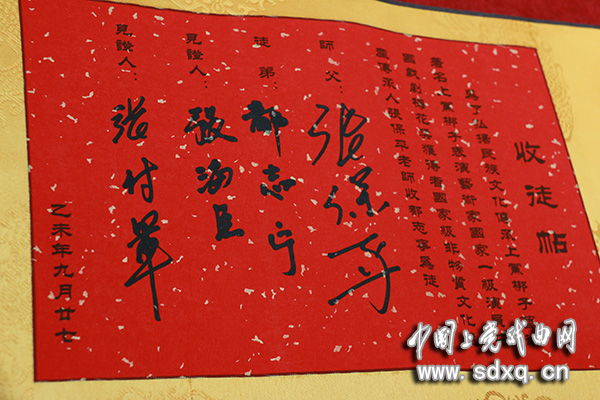 收徒帖
為了弘揚民族文化傳承上黨梆子
著名上黨梆子表演藝術家國家一級演員
國戲劇梅花獎獲得者國家級非物質文化
遺傳承人張保平老師收郝志寧爲徒
師父：張保平
徒弟：郝志宁
見證人：
見證人：張付翠
乙未年九月廿七
中国上党戏曲网
www.sdxq.cn